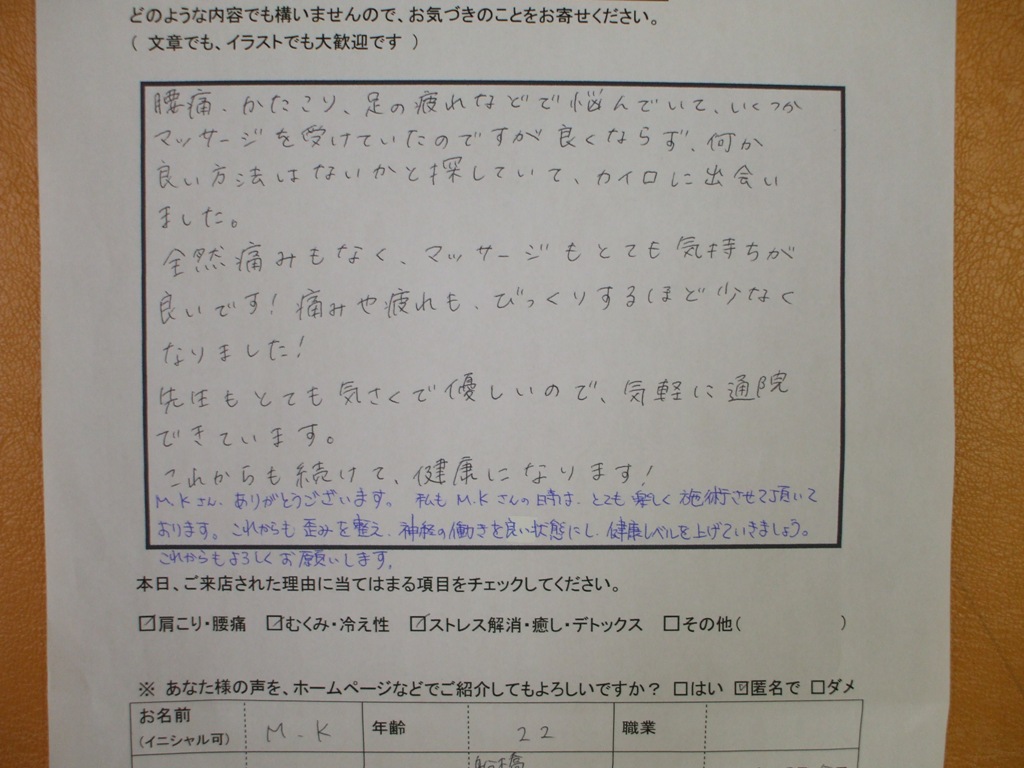 どのような内容でも構いませんので、お気づきのことをお寄せください。
( 文章でも、イラストでも大歓迎です )
腰痛、かたこり、足の疲れなどで悩んでいて、いくつか
マッサージを受けていたのですが良くならず、何か
良い方法はないかと探していて、カイロに出会い
ました。
全然痛みもなく、マッサージもとても気持ちが
良いです!痛みや疲れも、びっくりするほど少なく
なりました!
先生もとても気さくで優しいので、気軽に通院
できています。
これからも続けて、健康になります!
M.Kさん、ありがとうございます。 私もM.Kさんの日時は、とても楽しく施術させて頂いて
おります。これからも歪みを整え、神経の働きを良い状態にし、健康レベルを上げていきましょう。
これからもよろしくお願いします。
本日、ご来店された理由に当てはまる項目をチェックしてください。
☑肩こり・腰痛 ☑むくみ・冷え性 ☑ストレス解消・癒し・デトックス □その他( )
※ あなた様の声を、ホームページなどでご紹介してもよろしいですか? □はい ☑匿名で □ダメ
お名前 M.K 年齢 22 職業
(イニシャル可)
船橋